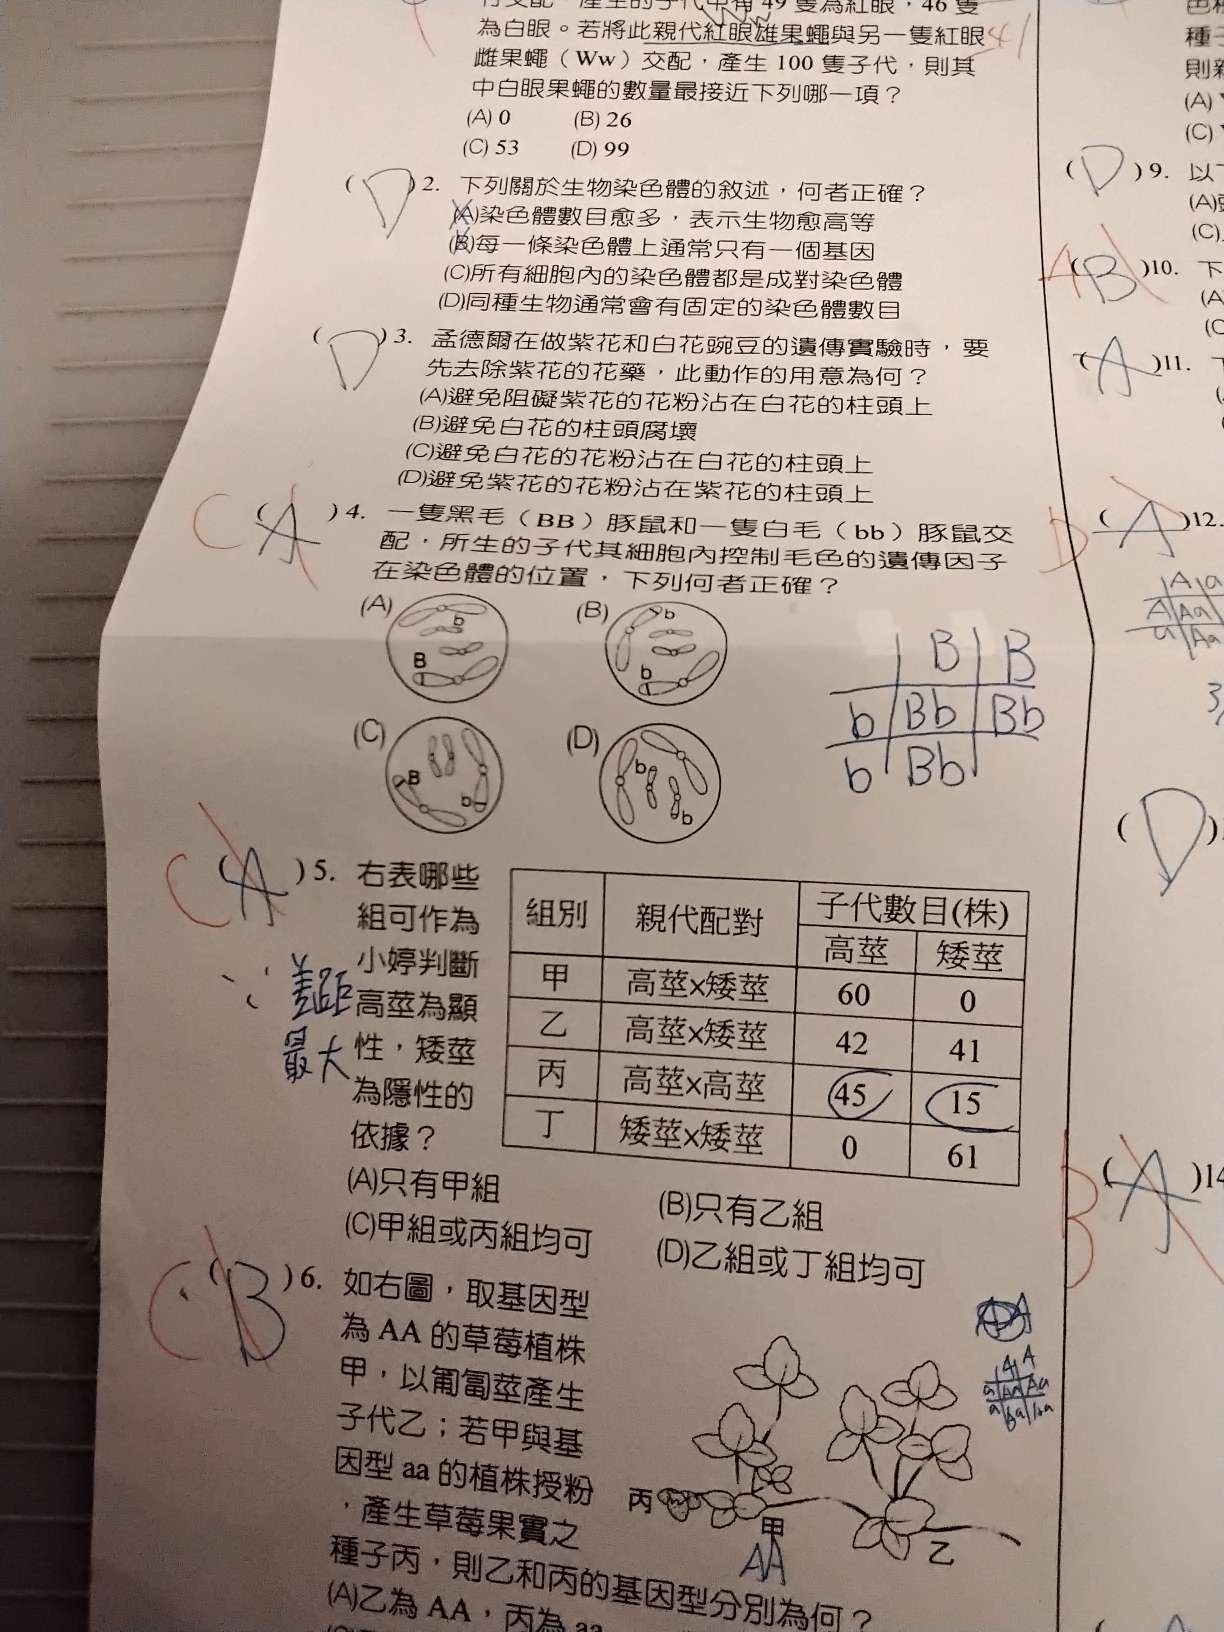 為白眼。若將此親代紅眼雄果蠅與另一隻紅眼
雌果蠅（Ww）交配，產生 100 隻子代，則其
中白眼果蠅的數量最接近下列哪一項？
(A) 0 (B) 26
(C) 53 (D) 99
( D ) 2. 下列關於生物染色體的敘述，何者正確？
(A)染色體數目愈多，表示生物愈高等
(B)每一條染色體上通常只有一個基因
(C)所有細胞內的染色體都是成對染色體
(D)同種生物通常會有固定的染色體數目
( D ) 3. 孟德爾在做紫花和白花豌豆的遺傳實驗時，要
先去除紫花的花藥，此動作的用意為何？
(A)避免阻礙紫花的花粉沾在白花的柱頭上
(B)避免白花的柱頭腐壞
(C)避免白花的花粉沾在白花的柱頭上
(D)避免紫花的花粉沾在紫花的柱頭上
C ( A ) 4. 一隻黑毛（BB）豚鼠和一隻白毛（bb）豚鼠交
配，所生的子代其細胞內控制毛色的遺傳因子
在染色體的位置，下列何者正確？
(A) b B (B) b b
(C) B b (D) b b
B B
b Bb Bb
b Bb
C ( A ) 5. 右表哪些
組可作為
小婷判斷
高莖為顯
性，矮莖
為隱性的
依據？
∵差距
最大
組別 親代配對 子代數目(株)
高莖 矮莖
甲 高莖x矮莖 60 0
乙 高莖x矮莖 42 41
丙 高莖x高莖 45 15
丁 矮莖x矮莖 0 61
(A)只有甲組 (B)只有乙組
(C)甲組或丙組均可 (D)乙組或丁組均可
C ( B ) 6. 如右圖，取基因型
為 AA 的草莓植株
甲，以匍匐莖產生
子代乙；若甲與基
因型 aa 的植株授粉
，產生草莓果實之
種子丙，則乙和丙的基因型分別為何？
(A)乙為 AA，丙為 aa
丙 甲 乙
AA
( D ) 9. 以
(A)
(C)
A ( B ) 10. 下
(A
(C
( A ) 11.
D ( A ) 12.
( D )
B ( A ) 14